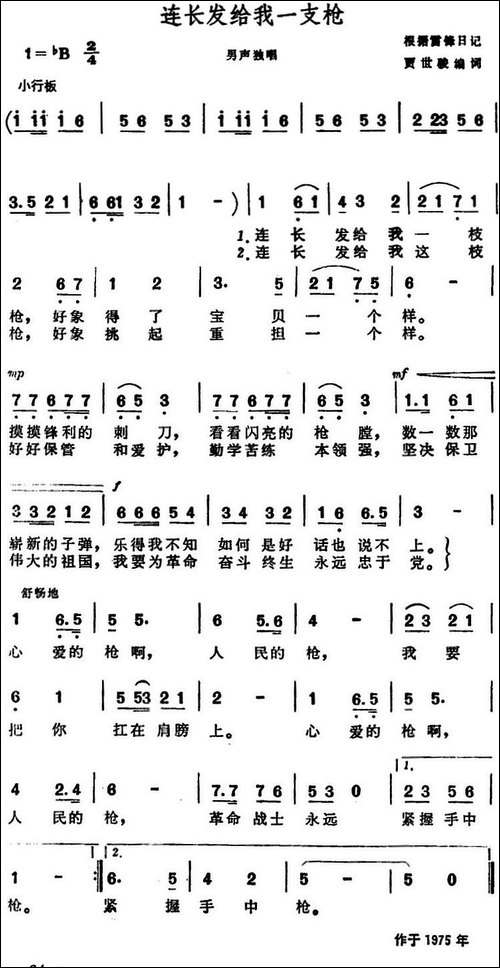 连长发给我一支枪
1=♭B 2/4 男声独唱 根据雷锋日记
贾世骏编词
小行板
(i ii i 6 | 5 6 5 3 | i ii i 6 | 5 6 5 3 | 2 23 5 6 |
3.5 2 1 | 6 61 3 2 | 1 - ) | 1 6 1 | 4 3 2 | 2 1 7 1 |
1.连长 发给 我 一 枝
2.连长 发给 我 这 枝
2 6 7 | 1 2 | 3. 5 | 2 1 7 5 | 6 - |
枪，好象 得 了 宝 贝 一 个 样。
枪，好象 挑 起 重 担 一 个 样。
mp mf
7 7 6 7 7 | 6 5 3 | 7 7 6 7 7 | 6 5 3 | 1.1 6 1 |
摸摸锋利的 刺 刀， 看看闪亮的 枪 膛， 数一数那
好好保管 和爱护， 勤学苦练 本领强， 坚决 保卫
f
3 3 2 1 2 | 6 6 6 5 4 | 3 4 3 2 | 1 6 6.5 | 3 - |
崭新的子弹，乐得我不知 如何 是好 话也 说不 上。
伟大的祖国，我要为革命 奋斗 终生 永远 忠于 党。
舒畅地
1 6.5 | 5 5. | 6 5.6 | 4 - | 2 3 2 1 |
心 爱的 枪啊， 人 民的 枪， 我 要
6 1 | 5 53 2 1 | 2 - | 1 6.5 | 5 5. |
把 你 扛在 肩膀 上。 心 爱的 枪啊，
1.
4 2.4 | 6 - | 7.7 7 6 | 5 3 0 | 2 3 5 6 |
人 民的 枪， 革命 战士 永远 紧握 手中
2.
1 - :| 6. 5 | 4 2 | 5 - | 5 0 ||
枪。 紧 握 手 中 枪。
作于 1975 年